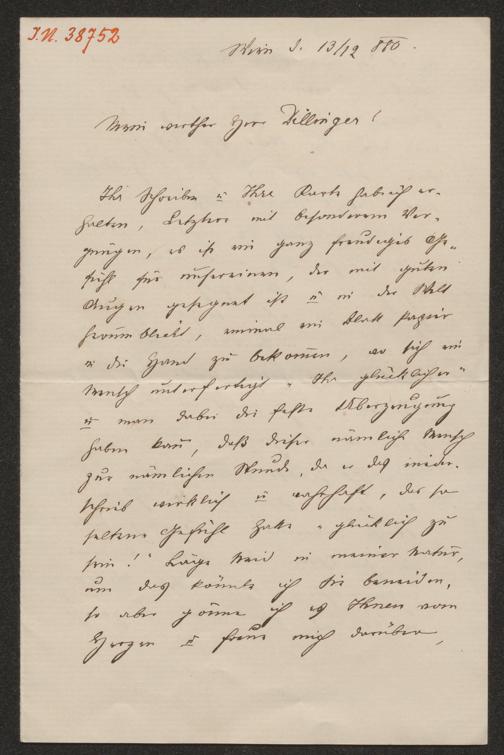 J.N. 38752
Wien d. 13/12 880.
Mein werther Herr Dillinger!
Ihr Schreiben u Ihre Karte hab ich er-
halten, Letztere mit besonderem Ver-
gnügen, es ist ein ganz freudiges Ge-
fühl für unsereinen, der mit guten
Augen gesegnet ist u in die Welt
herumblickt, einmal ein Blatt Papier
in die Hand zu bekommen, wo sich ein
Mensch unterfertigt „Ihr glücklicher"
u man dabei die feste Überzeugung
haben kann, daß dieser nämliche Mensch
zur nämlichen Stunde, da er das nieder-
schrieb wirklich u wahrhaft, das so
seltene Gefühl hatte „glücklich zu
sein!" Läge Neid in meiner Natur,
um das könnte ich Sie beneiden,
so aber gönne ich es Ihnen vom
Herzen u freue mich darüber,